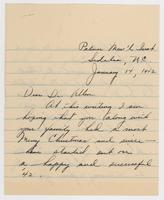 Palmer Mem'l Inst
Sedalia, N.C.
January 14, 1942
Dear Dr.
At this writing I am
hoping that you along with
your family had a most
Merry Christmas and
have started out on
a happy and successful
'42.